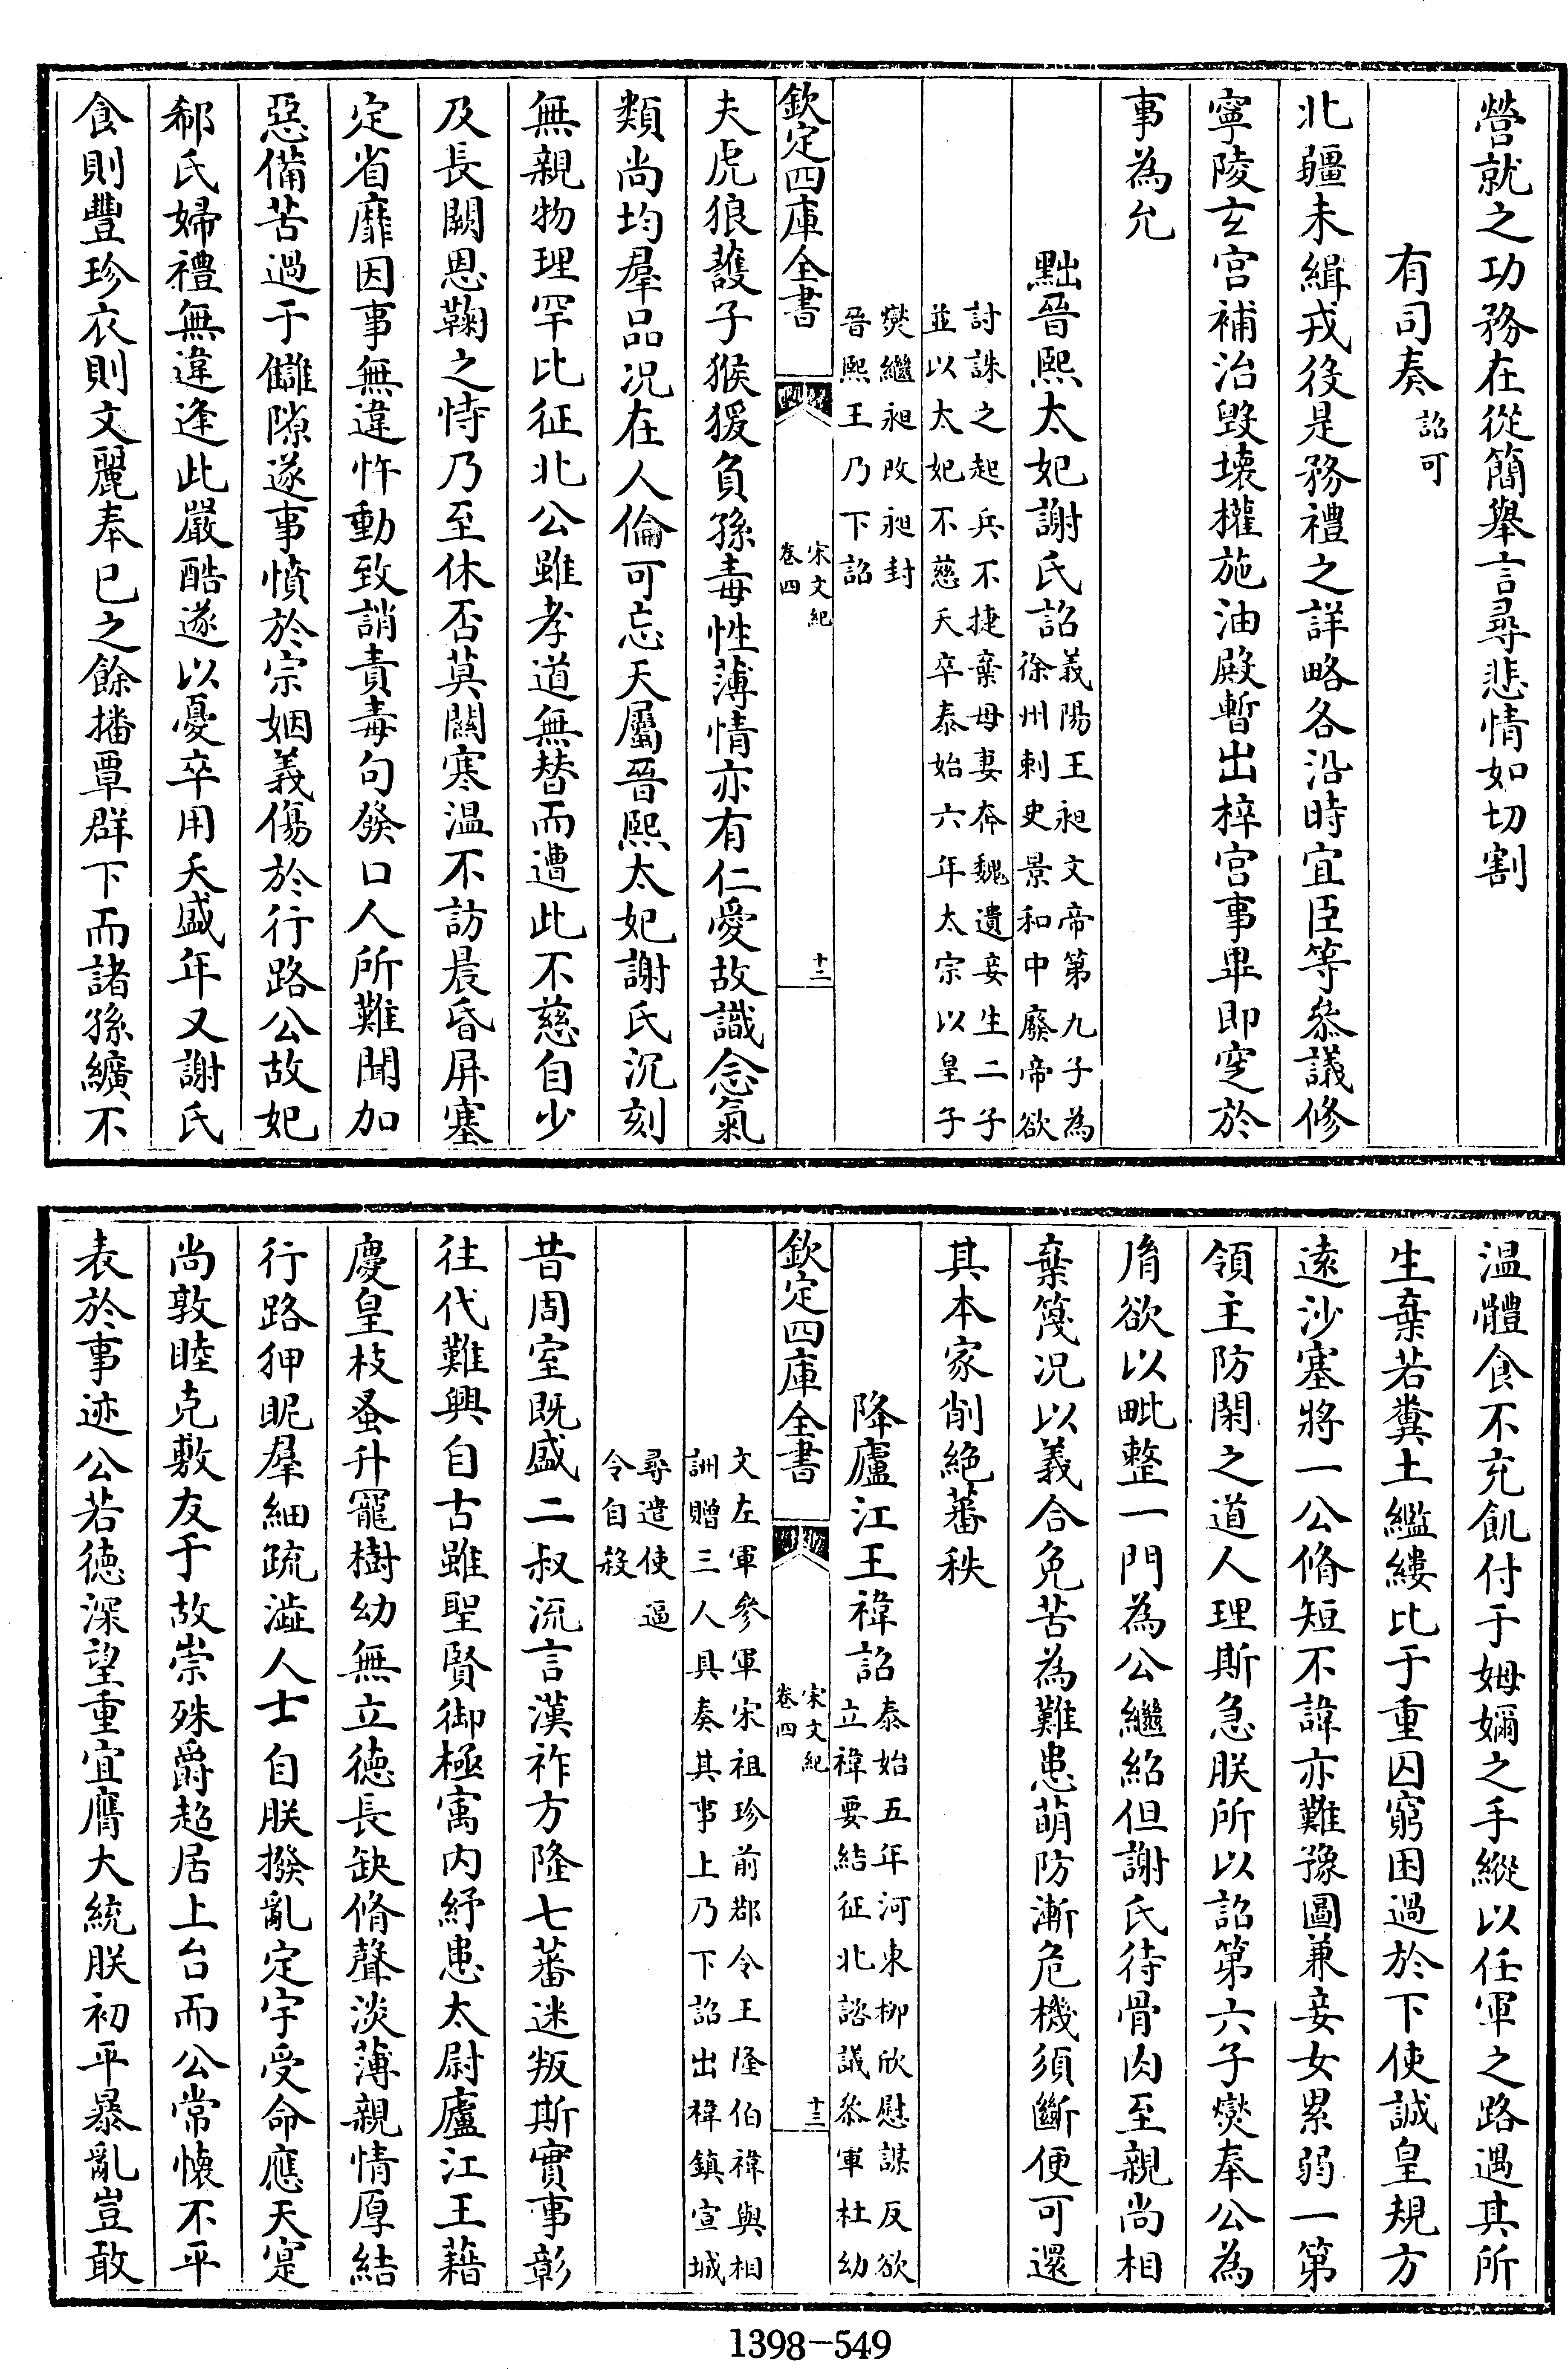 營就之功務在從簡舉言尋悲情如切割
有司奏詔可
北疆未緝戎役是務禮之詳略各沿時宜臣等叅議修
寧陵玄宫補治毁壞權施油殿暫出梓宫事畢即窆於
事為允
黜晉熙太妃謝氏詔義陽王昶文帝第九子為
徐州刺史景和中廢帝欲
討誅之起兵不捷棄母妻奔魏遺妾生二子
並以太妃不慈夭卒泰始六年太宗以皇子
欽定四庫全書
宋文紀
卷四
十二
燮繼昶改昶封
晉熙王乃下詔
夫虎狼護子猴猨負孫毒性薄情亦有仁愛故識念氣
類尚均羣品况在人倫可忘天屬晉熙太妃謝氏沉刻
無親物理罕比征北公雖孝道無替而遭此不慈自少
及長闕恩鞠之恃乃至休否莫關寒温不訪晨昏屏塞
定省靡因事無違忤動致誚責毒句發口人所難聞加
惡備苦過于讎隙遂事憤於宗姻義傷於行路公故妃
郗氏婦禮無違逢此嚴酷遂以憂卒用夭盛年又謝氏
食則豐珍衣則文麗奉已之餘播覃群下而諸孫纊不
温體食不充飢付于姆嬭之手縱以任軍之路遇其所
生棄若糞土繿縷比于重囚窮困過於下使誠皇規方
遠沙塞將一公脩短不諱亦難豫圖兼妾女累弱一第
領主防閑之道人理斯急朕所以詔第六子燮奉公為
胤欲以毗整一門為公繼紹但謝氏待骨肉至親尚相
棄篾况以義合免苦為難患萌防漸危機須斷便可還
其本家削絶蕃秩
降廬江王禕詔泰始五年河東柳欣慰謀反欲
立禕要結征北諮議叅軍杜幼
欽定四庫全書
宋文紀
卷四
十三
文左軍參軍宋祖珍前郡令王隆伯禕與相
詶贈三人具奏其事上乃下詔出禕鎮宣城
尋遣使逼
令自殺
昔周室既盛二叔流言漢祚方隆七蕃迷叛斯實事彰
往代難興自古雖聖賢御極寓内紓患太尉廬江王藉
慶皇枝蚤升寵樹幼無立德長缺脩聲淡薄親情厚結
行路狎昵羣細疏澁人士自朕撥亂定宇受命應天寔
尚敦睦克敷友于故崇殊爵超居上台而公常懷不平
表於事迹公若德深望重宜膺大統朕初平暴亂豈敢
1398-549